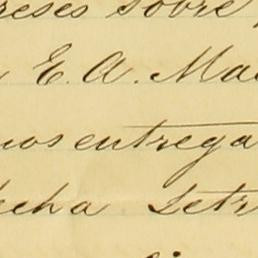 reses sobre
E. A. Mac
nos entrega
fecha Letr